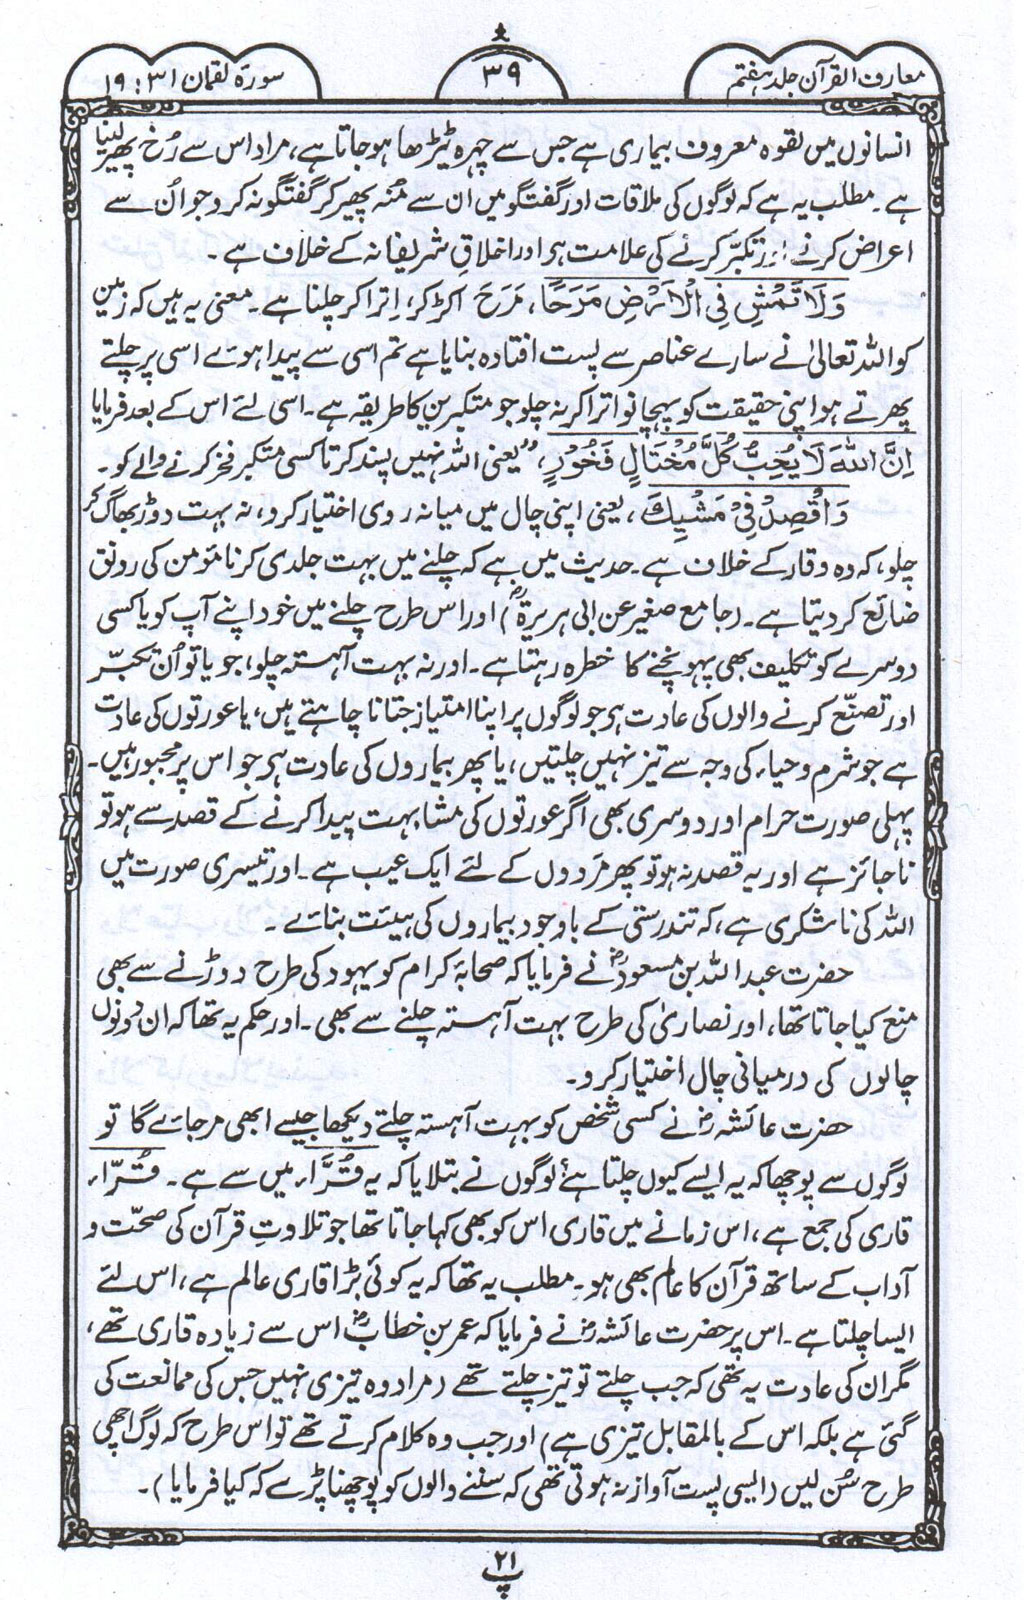 معارف القرآن جلد ہفتم
۳۹
سورۃ لقمان ۳۱ : ۱۹
انسانوں میں لقوہ معروف بیماری ہے جس سے چہرہ ٹیڑھا ہوجاتا ہے، مراد اس سے رُخ پھیر لینا
ہے۔ مطلب یہ ہے کہ لوگوں کی ملاقات اور گفتگو میں ان سے مُنہ پھیر کر گفتگو نہ کرو جو اُن سے
اعراض کرنے اور تکبّر کرنے کی علامت ہے اور اخلاقِ شریفانہ کے خلاف ہے۔
وَلَا تَمْشِ فِی الْاَرْضِ مَرَحًا، مَرَحَ اکڑ کر، اِترا کر چلنا ہے۔ معنی یہ ہیں کہ زمین
کو اللہ تعالیٰ نے سارے عناصر سے پست افتادہ بنایا ہے تم اسی سے پیدا ہوئے اسی پر چلتے
پھرتے ہو اپنی حقیقت کو پہچانو اترا کر نہ چلو جو متکبرین کا طریقہ ہے۔ اسی لئے اس کے بعد فرمایا
اِنَّ اللّٰهَ لَا يُحِبُّ كُلَّ مُخْتَالٍ فَخُوْرٍ، ”یعنی اللہ نہیں پسند کرتا کسی متکبر فخر کرنے والے کو۔
وَاقْصِدْ فِيْ مَشْيِكَ، یعنی اپنی چال میں میانہ روی اختیار کرو، نہ بہت دوڑ بھاگ کر
چلو، کہ وہ وقار کے خلاف ہے۔ حدیث میں ہے کہ چلنے میں بہت جلدی کرنا مؤمن کی رونق
ضائع کر دیتا ہے۔ (جامع صغیر عن ابی ہریرۃؓ) اور اس طرح چلنے میں خود اپنے آپ کو یا کسی
دوسرے کو تکلیف بھی پہونچنے کا خطرہ رہتا ہے۔ اور نہ بہت آہستہ چلو، جو یا تو اُن تکبّر
اور تصنّع کرنے والوں کی عادت ہے جو لوگوں پر اپنا امتیاز جتانا چاہتے ہیں، یا عورتوں کی عادت
ہے جو شرم و حیاء کی وجہ سے تیز نہیں چلتیں، یا پھر بیماروں کی عادت ہے جو اس پر مجبور ہیں۔
پہلی صورت حرام اور دوسری بھی اگر عورتوں کی مشابہت پیدا کرنے کے قصد سے ہو تو
ناجائز ہے اور یہ قصد نہ ہو تو پھر مَردوں کے لئے ایک عیب ہے۔ اور تیسری صورت میں
اللہ کی ناشکری ہے، کہ تندرستی کے باوجود بیماروں کی ہیئت بنائے۔
حضرت عبداللہ بن مسعودؓ نے فرمایا کہ صحابۂ کرام کو یہود کی طرح دوڑنے سے بھی
منع کیا جاتا تھا، اور نصاریٰ کی طرح بہت آہستہ چلنے سے بھی۔ اور حکم یہ تھا کہ ان دونوں
چالوں کی درمیانی چال اختیار کرو۔
حضرت عائشہؓ نے کسی شخص کو بہت آہستہ چلتے دیکھا جیسے ابھی مر جائے گا تو
لوگوں سے پوچھا کہ یہ ایسے کیوں چلتا ہے؟ لوگوں نے بتلایا کہ یہ قُرَّاء میں سے ہے۔ قُرّاء،
قاری کی جمع ہے، اس زمانے میں قاری اس کو بھی کہا جاتا تھا جو تلاوتِ قرآن کی صحّت و
آداب کے ساتھ قرآن کا عالم بھی ہو۔ مطلب یہ تھا کہ یہ کوئی بڑا قاری عالم ہے، اس لئے
ایسا چلتا ہے۔ اس پر حضرت عائشہؓ نے فرمایا کہ عمر بن خطابؓ اس سے زیادہ قاری تھے،
مگر ان کی عادت یہ تھی کہ جب چلتے تو تیز چلتے تھے (مراد وہ تیزی نہیں جس کی ممانعت کی
گئی ہے بلکہ اس کے بالمقابل تیزی ہے) اور جب وہ کلام کرتے تھے تو اس طرح کہ لوگ اچھی
طرح سُن لیں (ایسی پست آواز نہ ہوتی تھی کہ سننے والوں کو پوچھنا پڑے کہ کیا فرمایا)۔
۲۱
پ